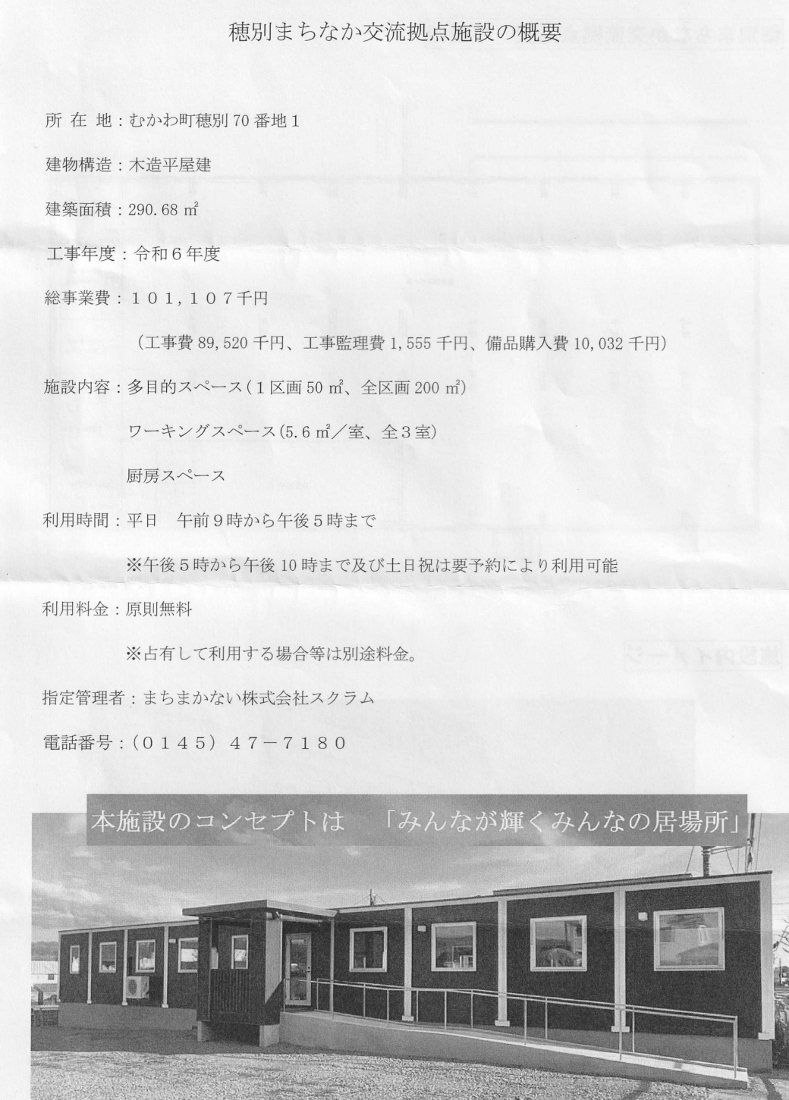 穂別まちなか交流拠点施設の概要
所 在 地：むかわ町穂別 70 番地１
建物構造：木造平屋建
建築面積：290.68 ㎡
工事年度：令和６年度
総事業費：１０１,１０７千円
（工事費 89,520 千円、工事監理費 1,555 千円、備品購入費 10,032 千円）
施設内容：多目的スペース（１区画 50 ㎡、全区画 200 ㎡）
ワーキングスペース（5.6 ㎡／室、全３室）
厨房スペース
利用時間：平日　午前９時から午後５時まで
※午後５時から午後 10 時まで及び土日祝は要予約により利用可能
利用料金：原則無料
※占有して利用する場合等は別途料金。
指定管理者：まちまかない株式会社スクラム
電話番号：（０１４５）４７－７１８０
本施設のコンセプトは　「みんなが輝くみんなの居場所」